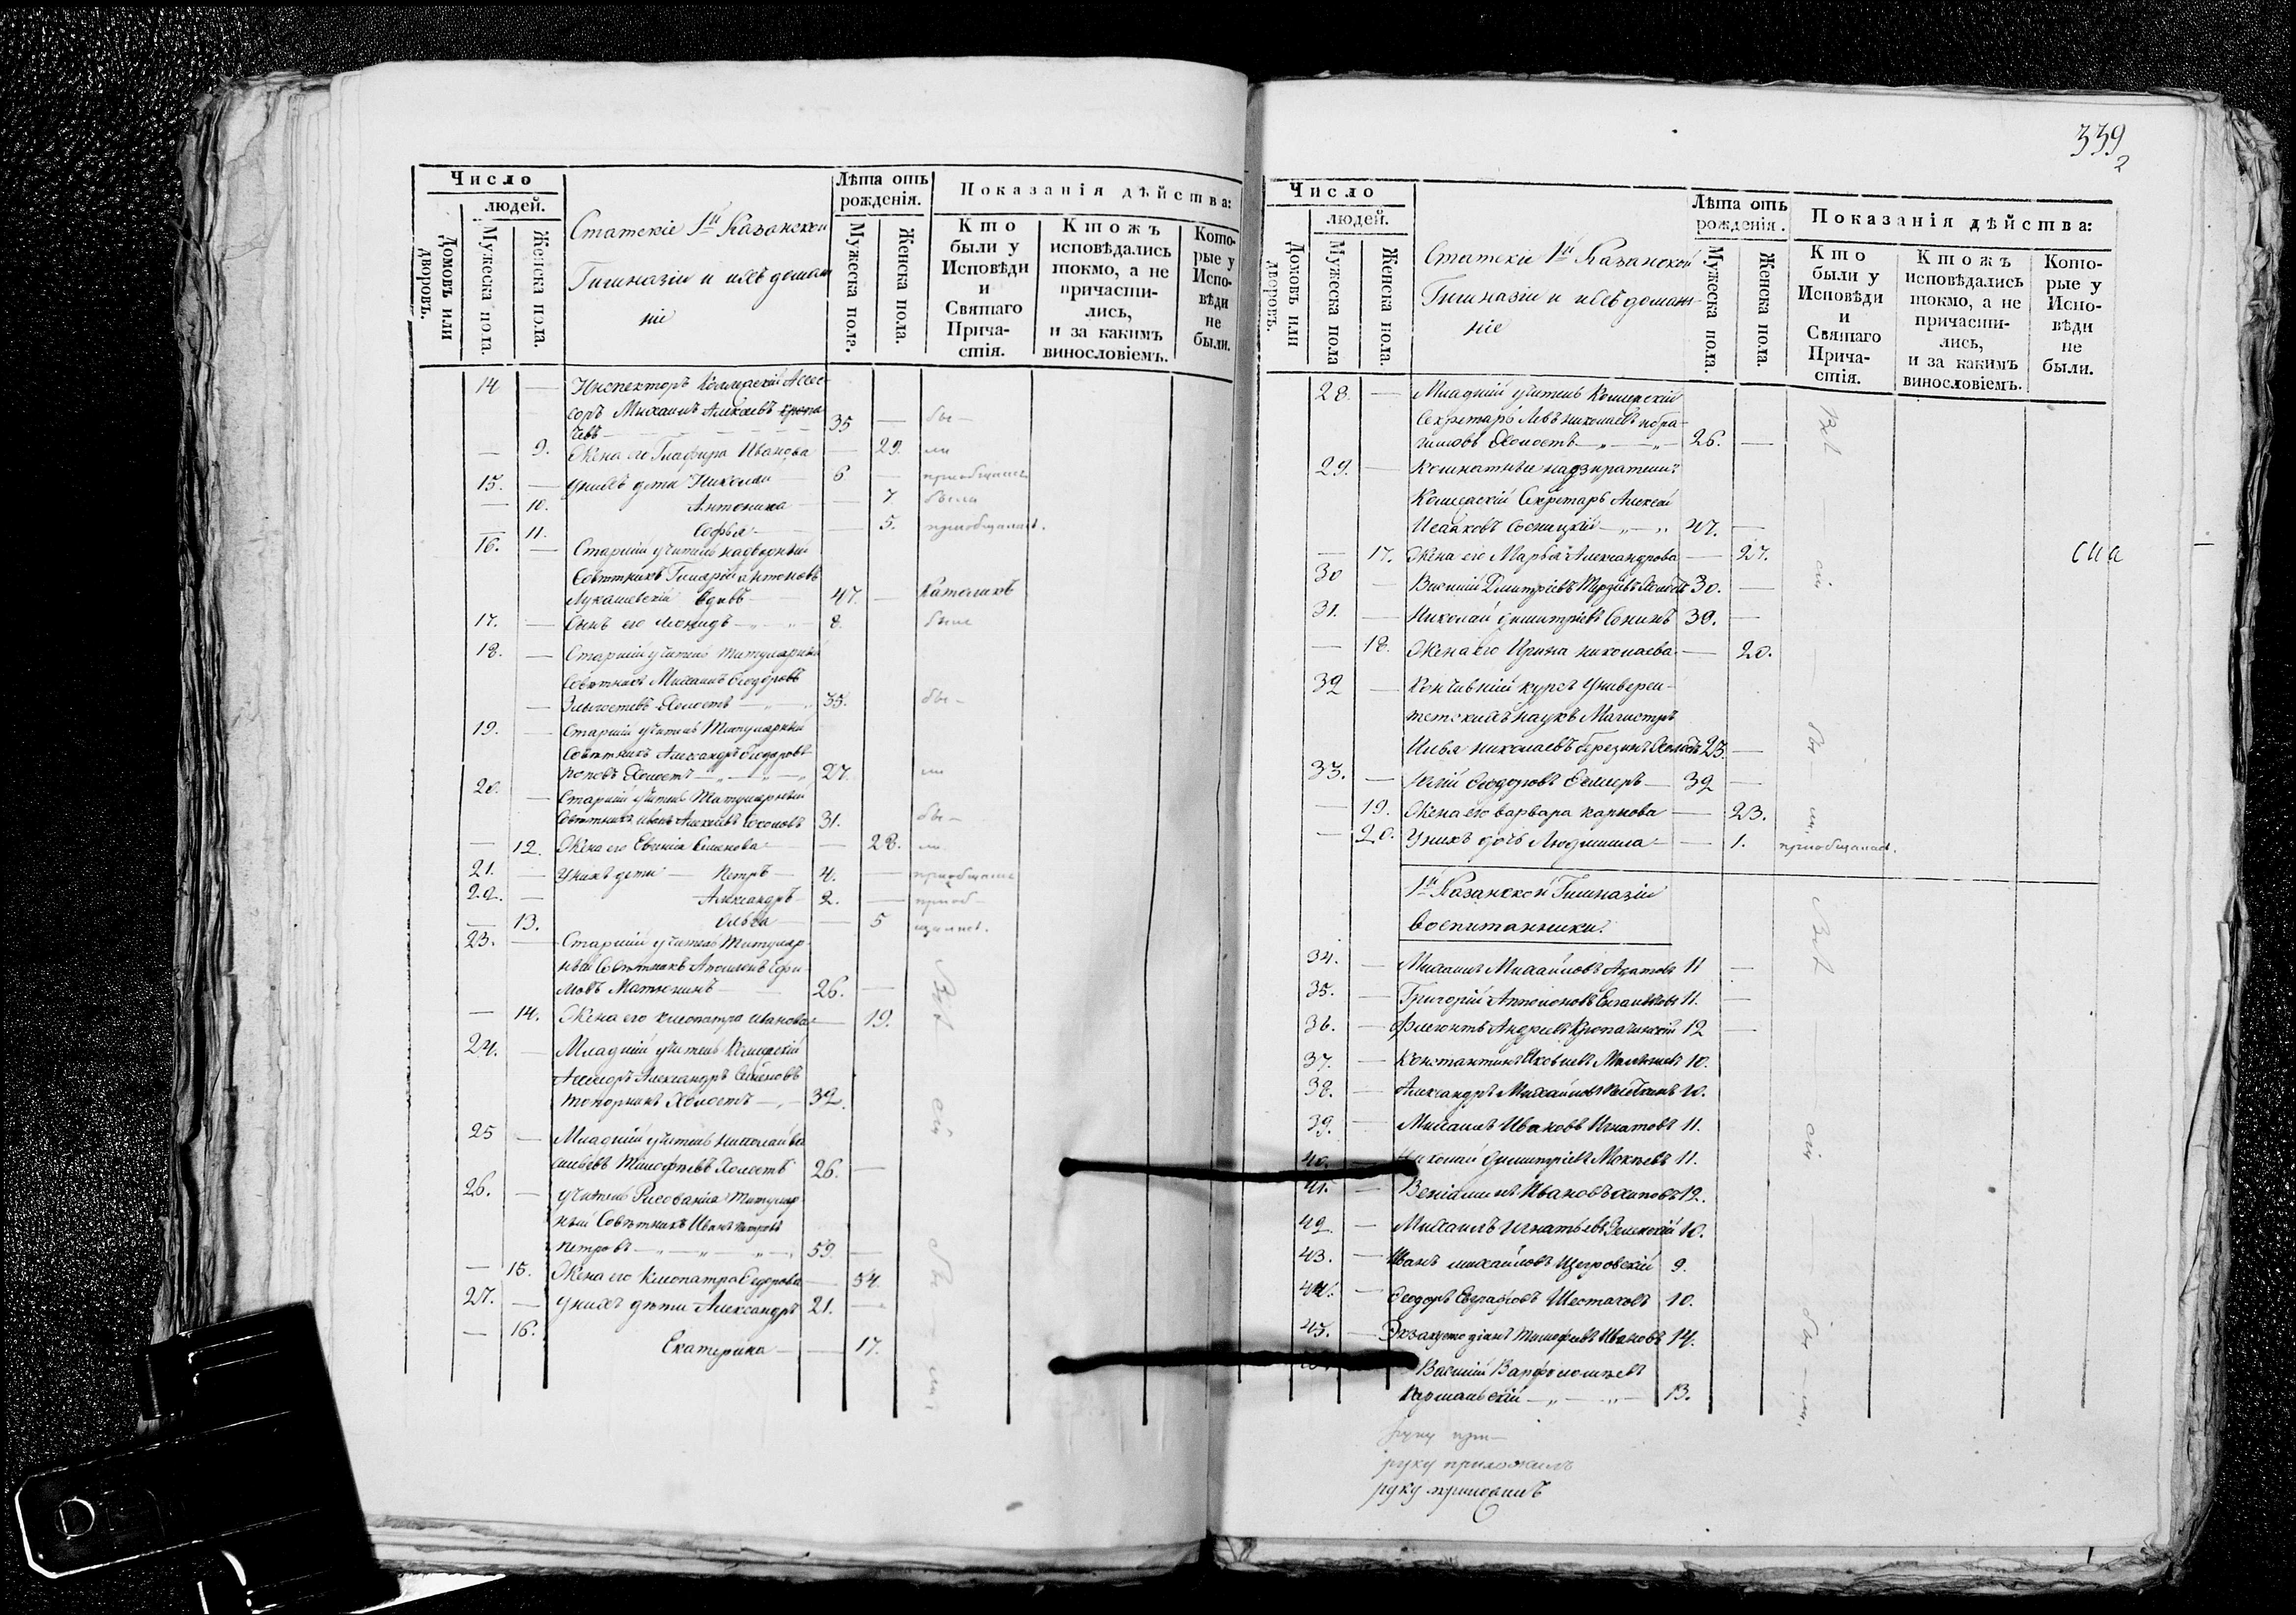 339
2
Число
людей.
Домовъ или дворовъ.
Мужеска пола.
Женска пола.
Статскіе 1й Казанской
Гимназіи и ихъ домаш
ніе
Лѣта отъ рожденія.
Мужеска пола.
Женска пола.
Показанія дѣйства:
Кто были у Исповѣди и Святаго Прича-стія.
Ктожъ исповѣдались токмо, а не причасти-лись, и за какимъ винословіемъ.
Кото-рые у Испо-вѣди не были.
14 — Инспекторъ Коллежскій Ассес-
соръ Михаилъ Алексѣевъ
35 — бы—
— 9. Жена его Глафира Иванова — 29. ли
15. — У нихъ дети Николай 6 —
— 10. Антонина — 7 была
— 11. Софья — 5. приобщалась.
16. — Старшій учитель надворный
Совѣтникъ Гиларій Антоновъ
Лукашевскій вдовъ 47. — Католикъ
17. — Сынъ его Леонидъ 8. былъ
18. — Старшій учитель титулярный
Совѣтникъ Михаилъ Ѳедоровъ
Холостъ 35. бы—
19. — Старшій учитель Титулярный
Совѣтникъ Александръ Ѳедоровъ
Поповъ Холостъ 27. ли
20. — Старшій учитель Титулярный
Совѣтникъ Иванъ Алексѣевъ Соколовъ 31. бы—
— 12. Жена его Евгенія Семенова — 28. ли
21. — У нихъ дети — Петръ 4. —
22. — Александръ 2. — приоб—
— 13. Ольга — 5 щались.
23. — Старшій учитель Титуляр
ный Совѣтникъ Аполлонъ Ефи
мовъ Матюнинъ 26. —
— 14. Жена его Клеопатра Иванова — 19.
24. — Младшій учитель Коллежскій
Ассесоръ Александръ Семеновъ
Топорнинъ Холостъ 32.
25 — Младшій учитель Николай Ва
сильевъ Тимофѣевъ Холостъ 26. —
26. — Учитель Рисованія Титуляр
ный Совѣтникъ Иванъ Петровъ
Петровъ 59. —
— 15. Жена его Клеопатра Ѳедорова — 54.
27. — У нихъ дѣти Александръ 21. —
— 16. Екатерина — 17.
Всѣ
сіи
бы—
ли,
Число
людей.
Домовъ или дворовъ.
Мужеска пола
Женска пола.
Статскіе 1й Казанской
Гимназіи и ихъ домаш
ніе
Лѣта отъ рожденія.
Мужеска пола.
Женска пола.
Показанія дѣйства:
Кто были у Исповѣди и Святаго Прича-стія.
Ктожъ исповѣдались токмо, а не причасти-лись, и за какимъ винословіемъ.
Кото-рые у Испо-вѣди не были.
28. — Младшій учитель Коллежскій
Секретарь Левъ Николаевъ Ибра-
гимовъ Холостъ 26. —
29. — Комнатные надзиратели:
Коллежскій Секретарь Алексѣй
Исааковъ Сосницкій 47. —
— 17. Жена его Марья Александрова — 27.
30 — Василій Дмитріевъ Холостъ 30. —
31. — Николай Димитріевъ Сонинъ 30. —
— 18. Жена его Ирина Николаева — 20.
32 — Кончившій курсъ Универси-
тетскихъ наукъ Магистръ
Илья Николаевъ Березинъ Холостъ 23. —
33. — Юлій Ѳедоровъ 32 —
— 19. Жена его Варвара Карлова — 23.
— 20. У нихъ дочь Людмилла — 1. приобщалась.
Всѣ
сіи
бы—
ли,
сиа
1й Казанской Гимназіи
воспитанники:
34. — Михаилъ Михайловъ Акатовъ 11 —
35. — Григорій 11. —
36. — Флегонтъ Андреевъ Кропачинскій 12 —
37. — Константинъ Яковлевъ 10.
38. — Александръ Михайловъ 10.
39. — Михаилъ Ивановъ Игнатовъ 11.
40. — Николай Димитріевъ Мокѣевъ 11.
41. — Веніаминъ Ивановъ 12.
42 — Михаилъ Игнатьевъ 10.
43. — Иванъ Михайловъ Щегровскій 9.
44. — Ѳедоръ Евграфовъ Шестаковъ 10.
45. — Экзакустодіанъ Тимофѣевъ Ивановъ 14.
Василій Варфоломѣевъ
13.
Всѣ
сіи
бы—
ли,
руку при—
руку приложилъ
руку приложилъ